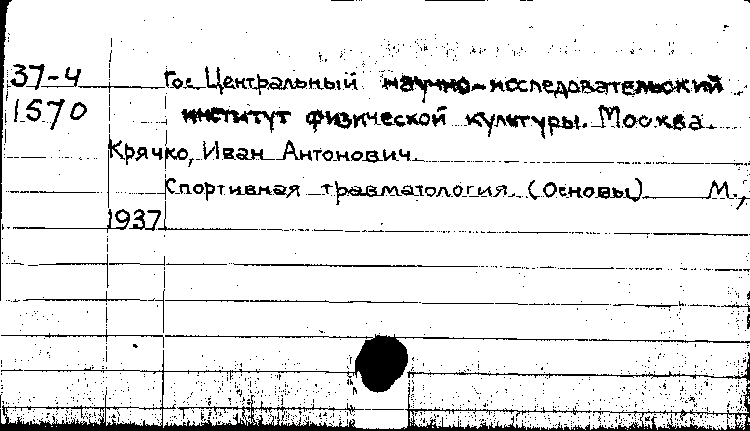 37-4 Гос. Центральный научно-исследовательский
1570 институт физической культуры. Москва.
Крячко, Иван Антонович.
Спортивная травматология. (Основы) М.,
1937